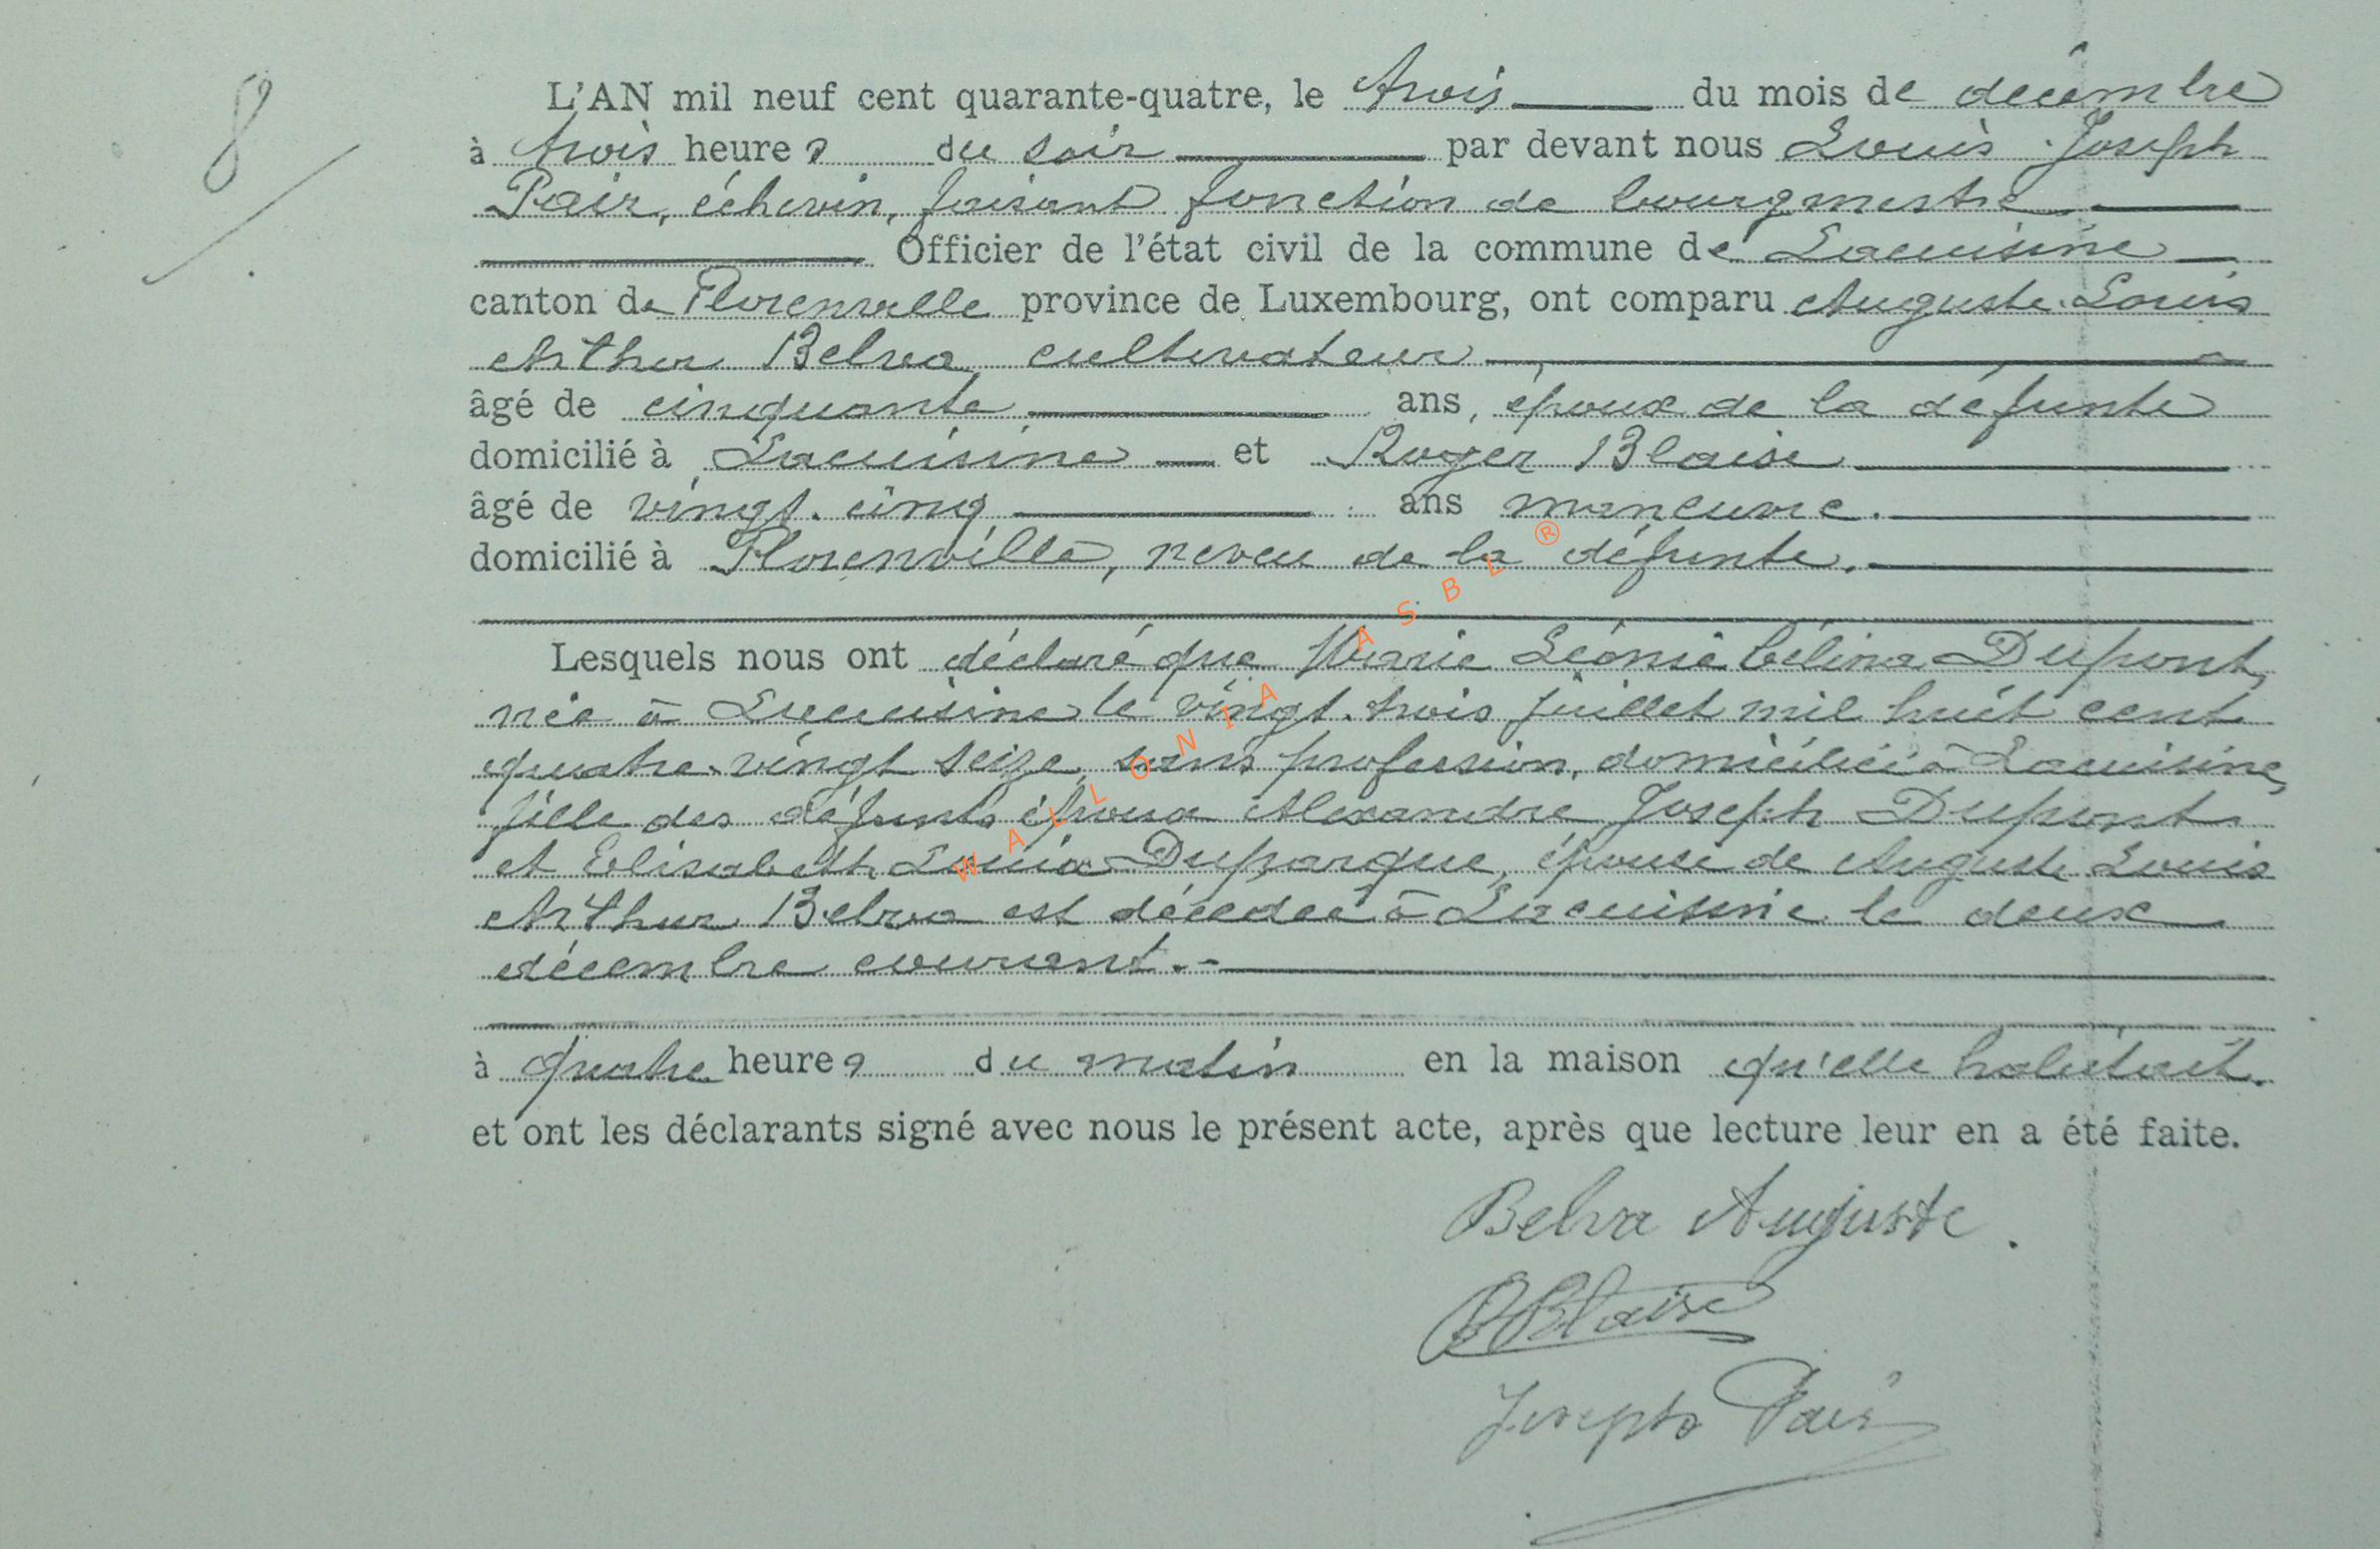 8
L'AN mil neuf cent quarante-quatre, le trois du mois de décembre
à trois heures du soir par devant nous Louis Joseph
Pair, échevin, faisant fonction de bourgmestre
Officier de l'état civil de la commune de Lacuisine
canton de Florenville province de Luxembourg, ont comparu Auguste Louis
Arthur Belva, cultivateur
âgé de cinquante ans, époux de la défunte
domicilié à Lacuisine et Roger Blaise
âgé de vingt-cinq ans manœuvre.
domicilié à Florenville, neveu de la défunte.
Lesquels nous ont déclaré que Marie Léonie Célina Dupont,
née à Lacuisine le vingt-trois juillet mil huit cent
quatre-vingt seize, sans profession, domiciliée à Lacuisine,
fille des défunts époux Alexandre Joseph Dupont
et Elisabeth Duparque, épouse de Auguste Louis
Arthur Belva est décédée à Lacuisine le deux
décembre courant.-
à quatre heures du matin en la maison qu'elle habitait.
et ont les déclarants signé avec nous le présent acte, après que lecture leur en a été faite.
Belva Auguste.
RBlaise
Joseph Pair
WALLONIA ASBL ®